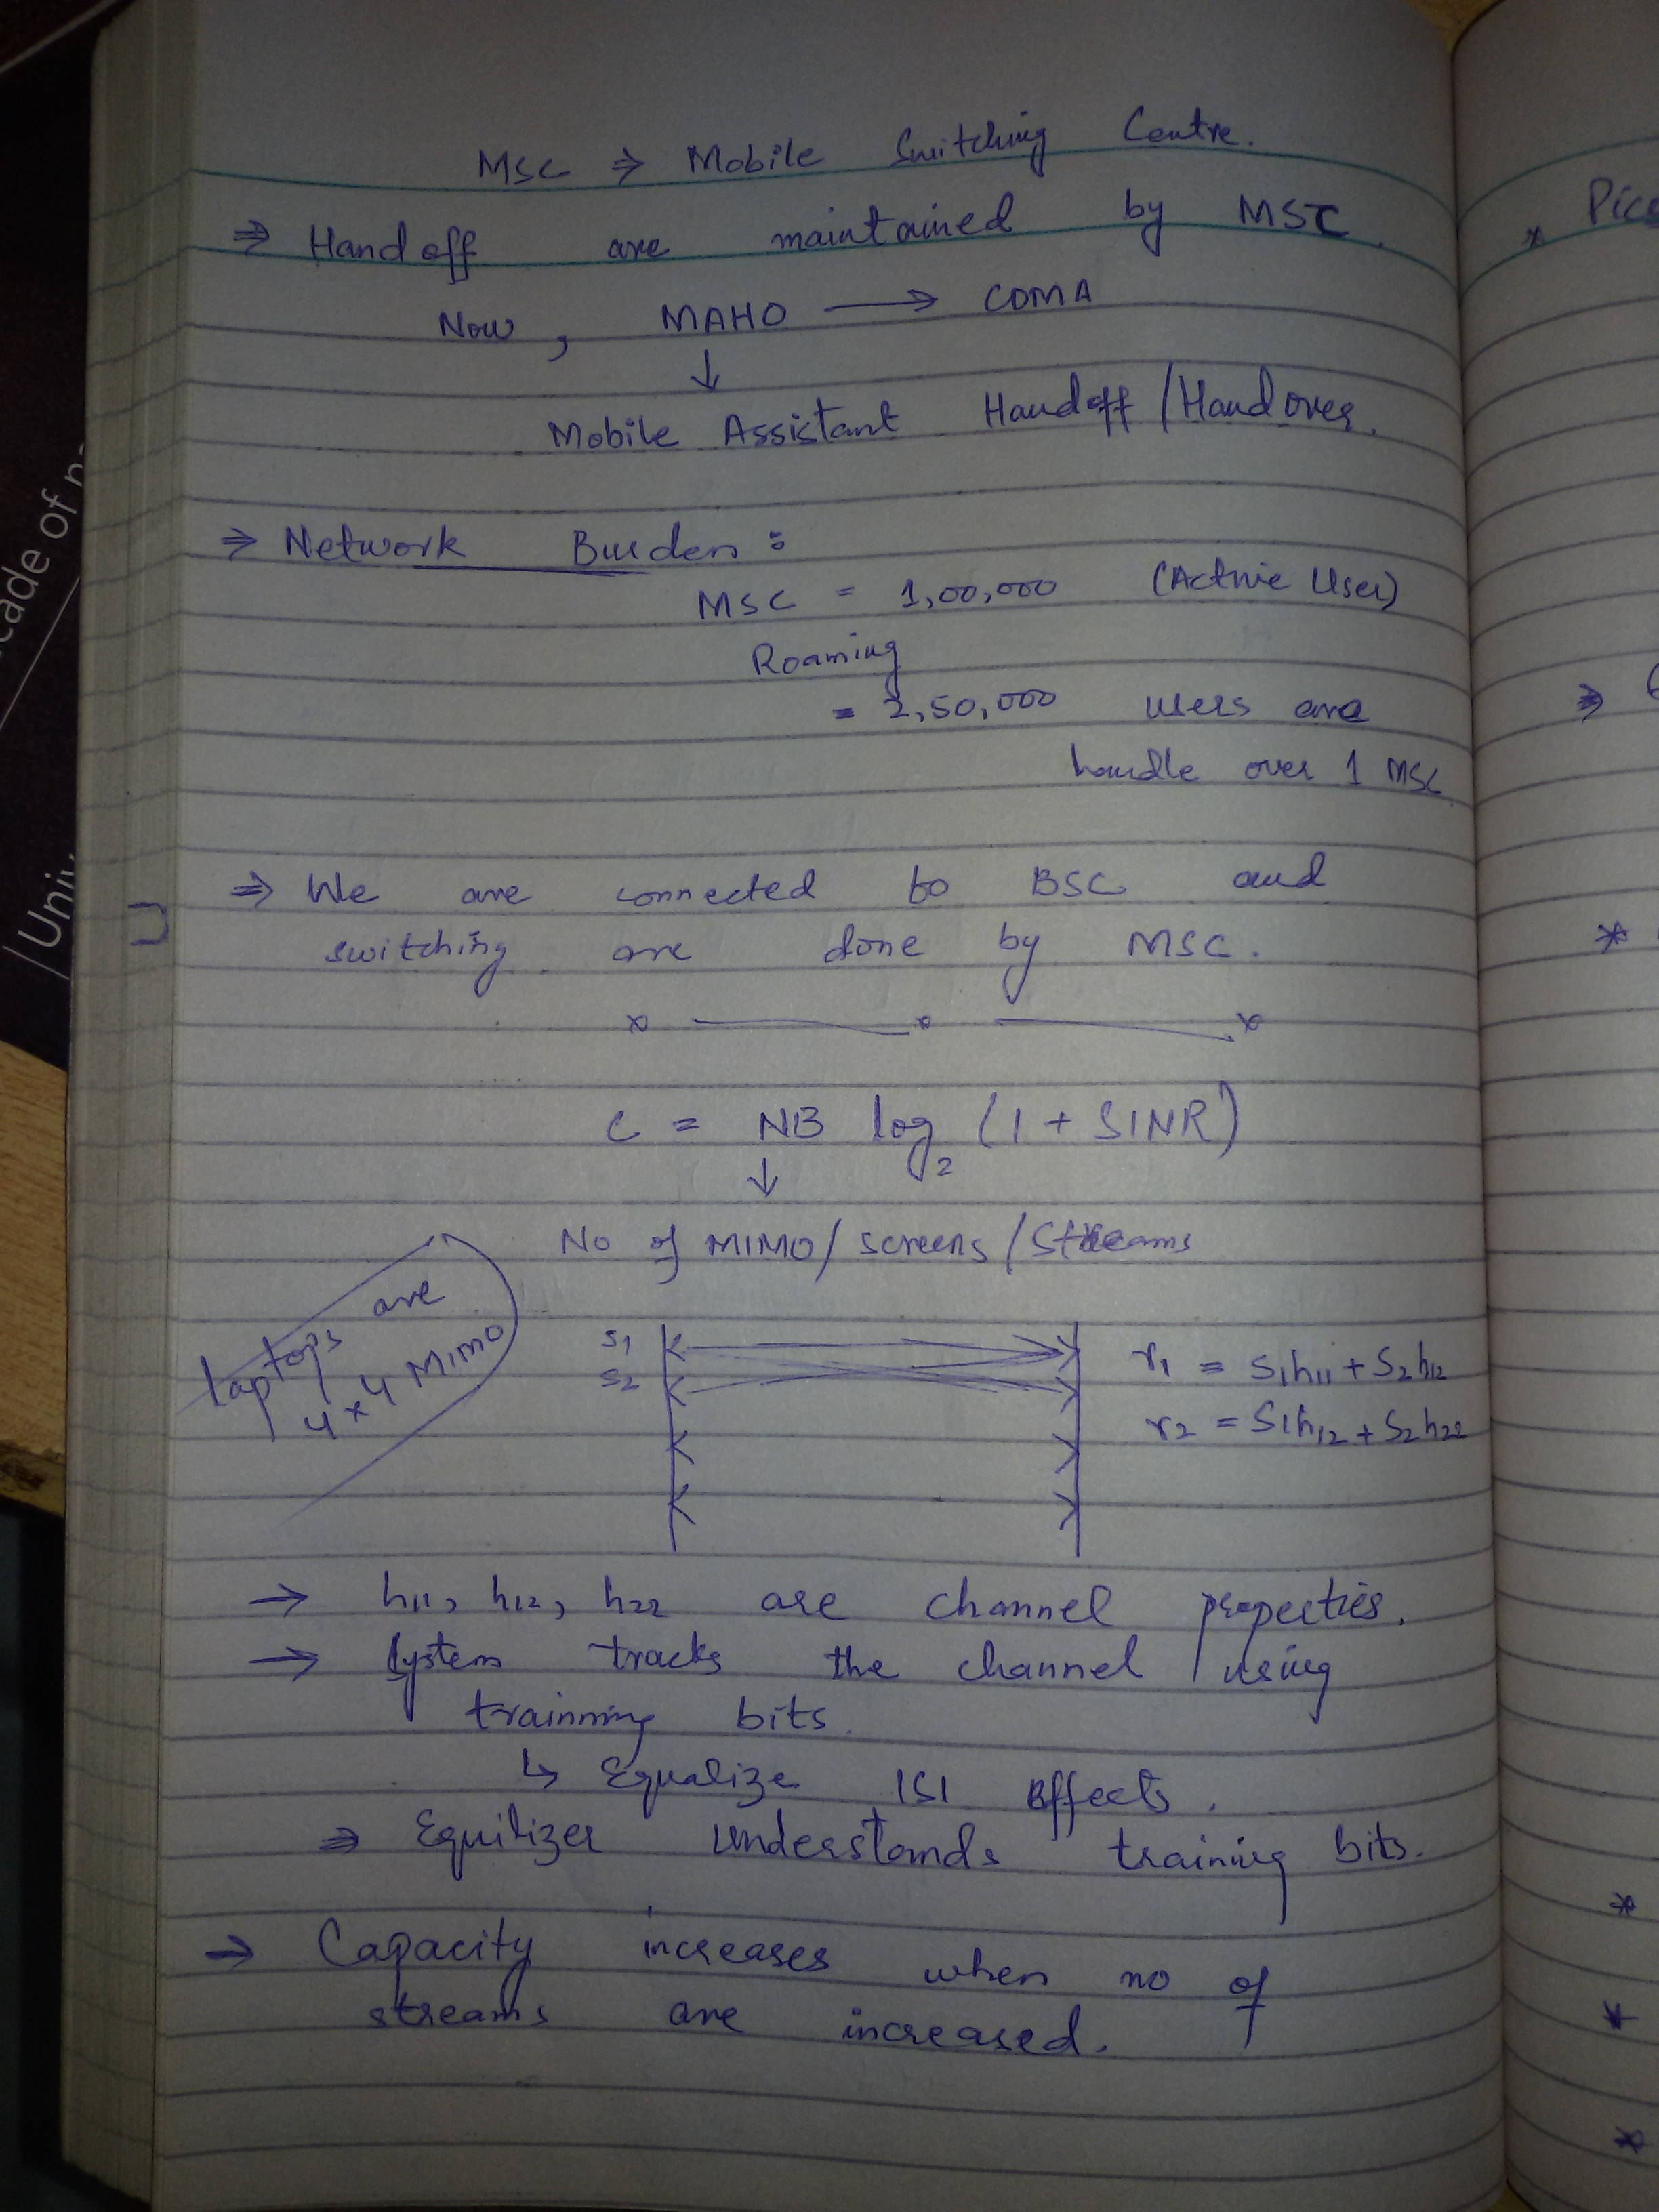 MSC ⇒ Mobile Switching Centre.
⇒ Handoff are maintained by MSC.
Now, MAHO → CDMA
↓
Mobile Assistant Handoff/Handover.
⇒ Network Burden :
MSC = 1,00,000 (Active User)
Roaming
= 2,50,000 users are
handle over 1 MSC
⇒ We are connected to BSC and
switching are done by MSC.
x —— x —— x
C = NB log₂ (1 + SINR)
↓
No of MIMO/ screens / Streams
laptops are
4 x 4 MIMO
S₁
S₂
r₁ = S₁h₁₁ + S₂h₁₂
r₂ = S₁h₁₂ + S₂h₂₂
→ h₁₁, h₁₂, h₂₂ are channel properties.
→ System tracks the channel using
trainning bits.
↳ Equalize ISI Effects.
⇒ Equilizer understands training bits.
→ Capacity increases when no of
streams are increased.
Pico
cade of
Univ